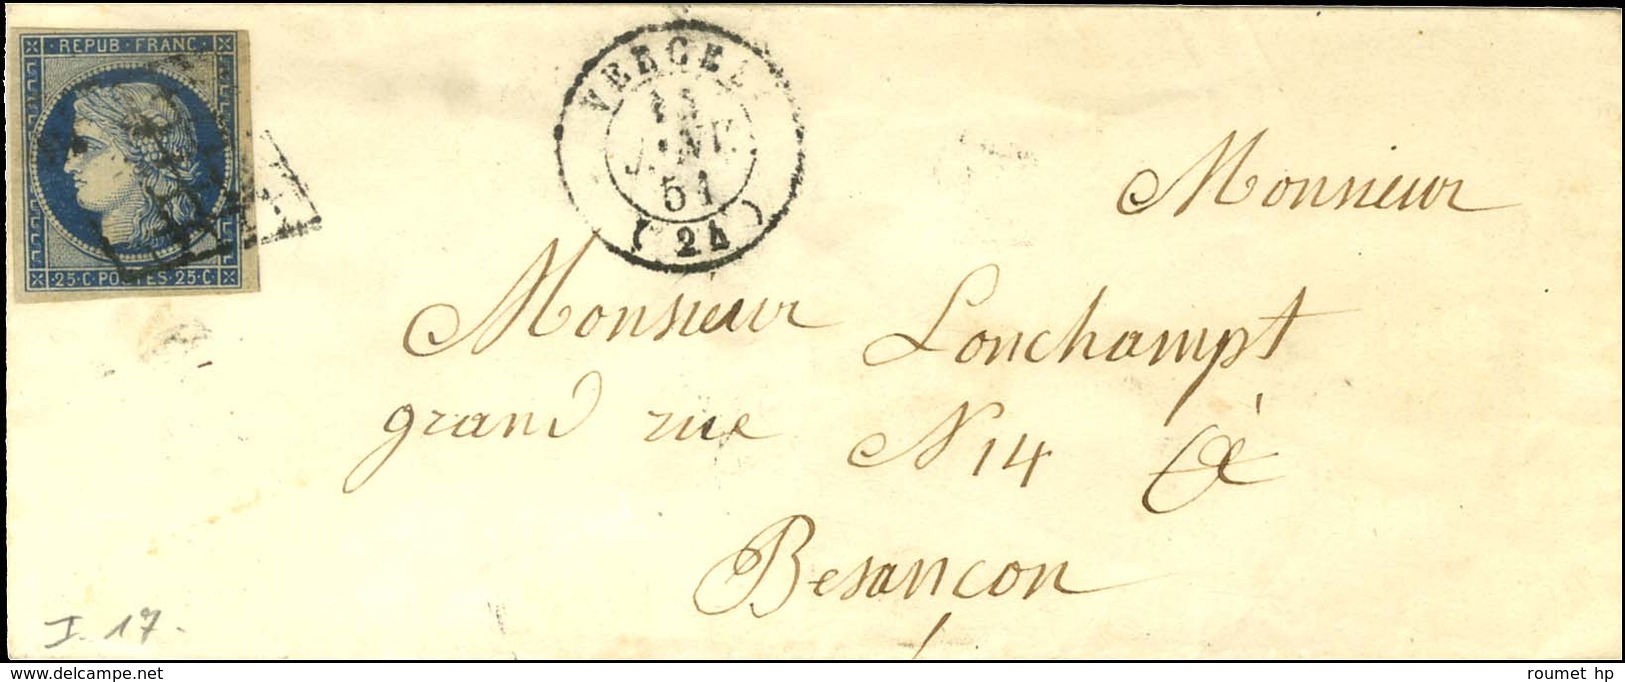 REPUB · FRANC
25 · C · POSTES · 25 · C
VERCEL
JANV.
51
(24)
Monsieur
Monsieur Lonchampt
grand rue N 14 à
Besançon
I. 17.
delcampe.net
roumet hp